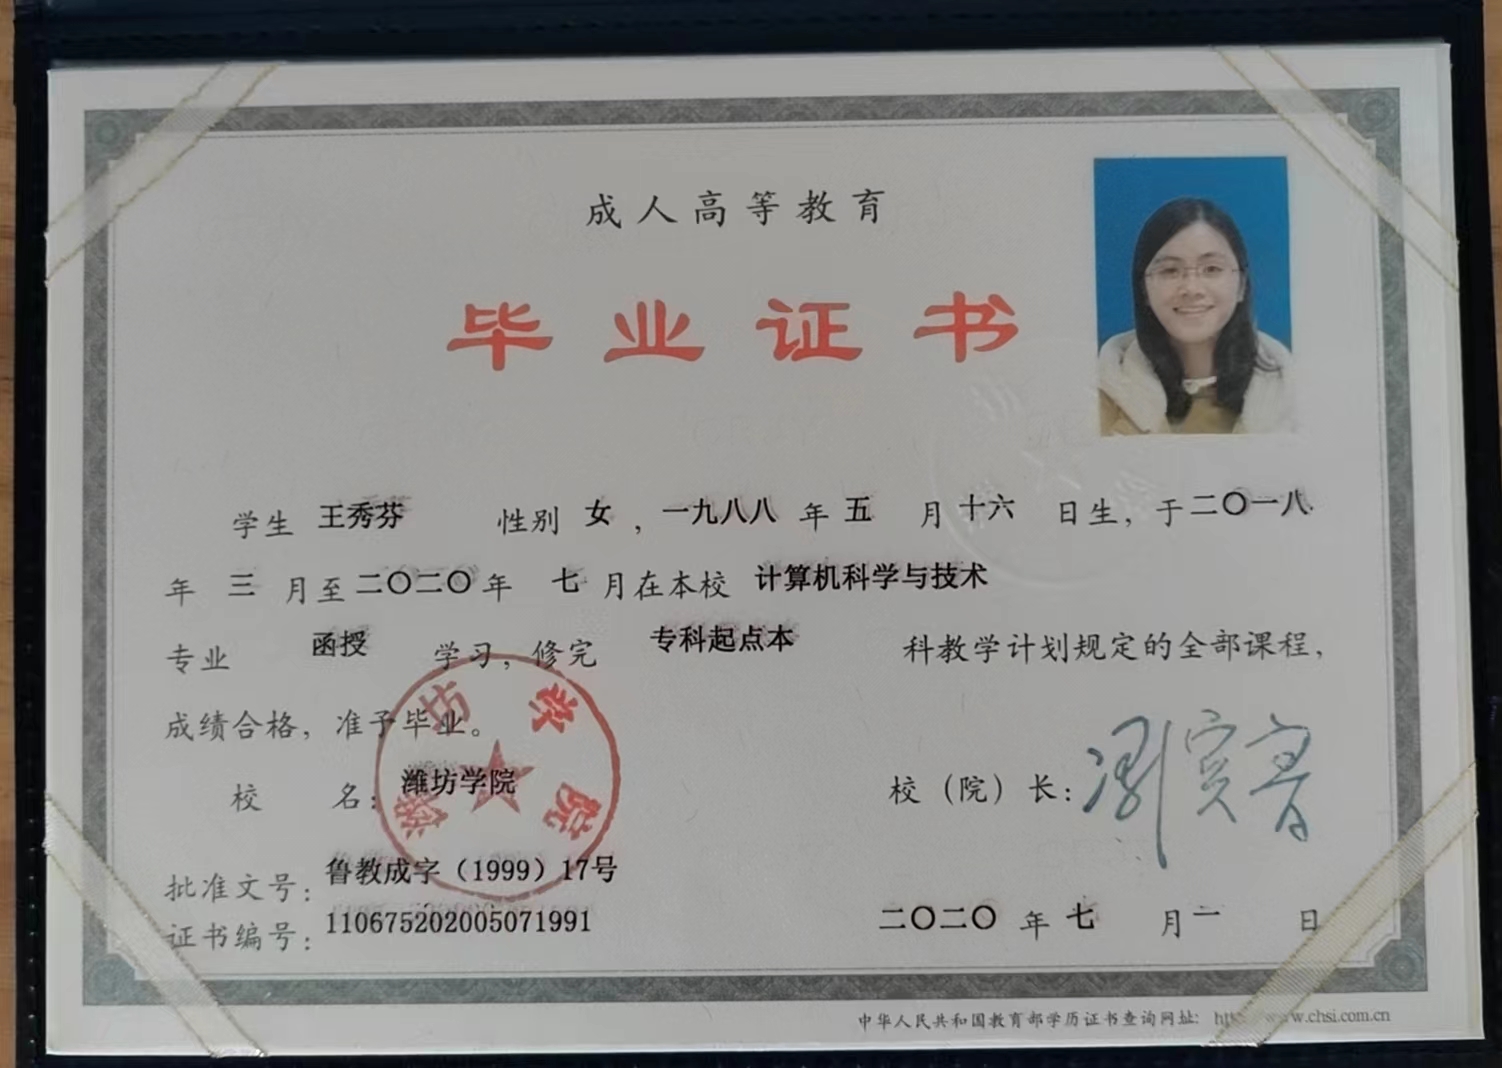 成人高等教育
毕业证书
学生 王秀芬 性别 女，一九八八 年 五 月 十六 日生，于二〇一八
年 三 月至 二〇二〇 年 七 月在本校 计算机科学与技术
专业 函授 学习，修完 专科起点本 科教学计划规定的全部课程，
成绩合格，准予毕业。
校 名：潍坊学院
校（院）长：
批准文号：鲁教成字（1999）17号
证书编号：110675202005071991
二〇二〇 年 七 月 一 日
潍坊学院
中华人民共和国教育部学历证书查询网址：www.chsi.com.cn